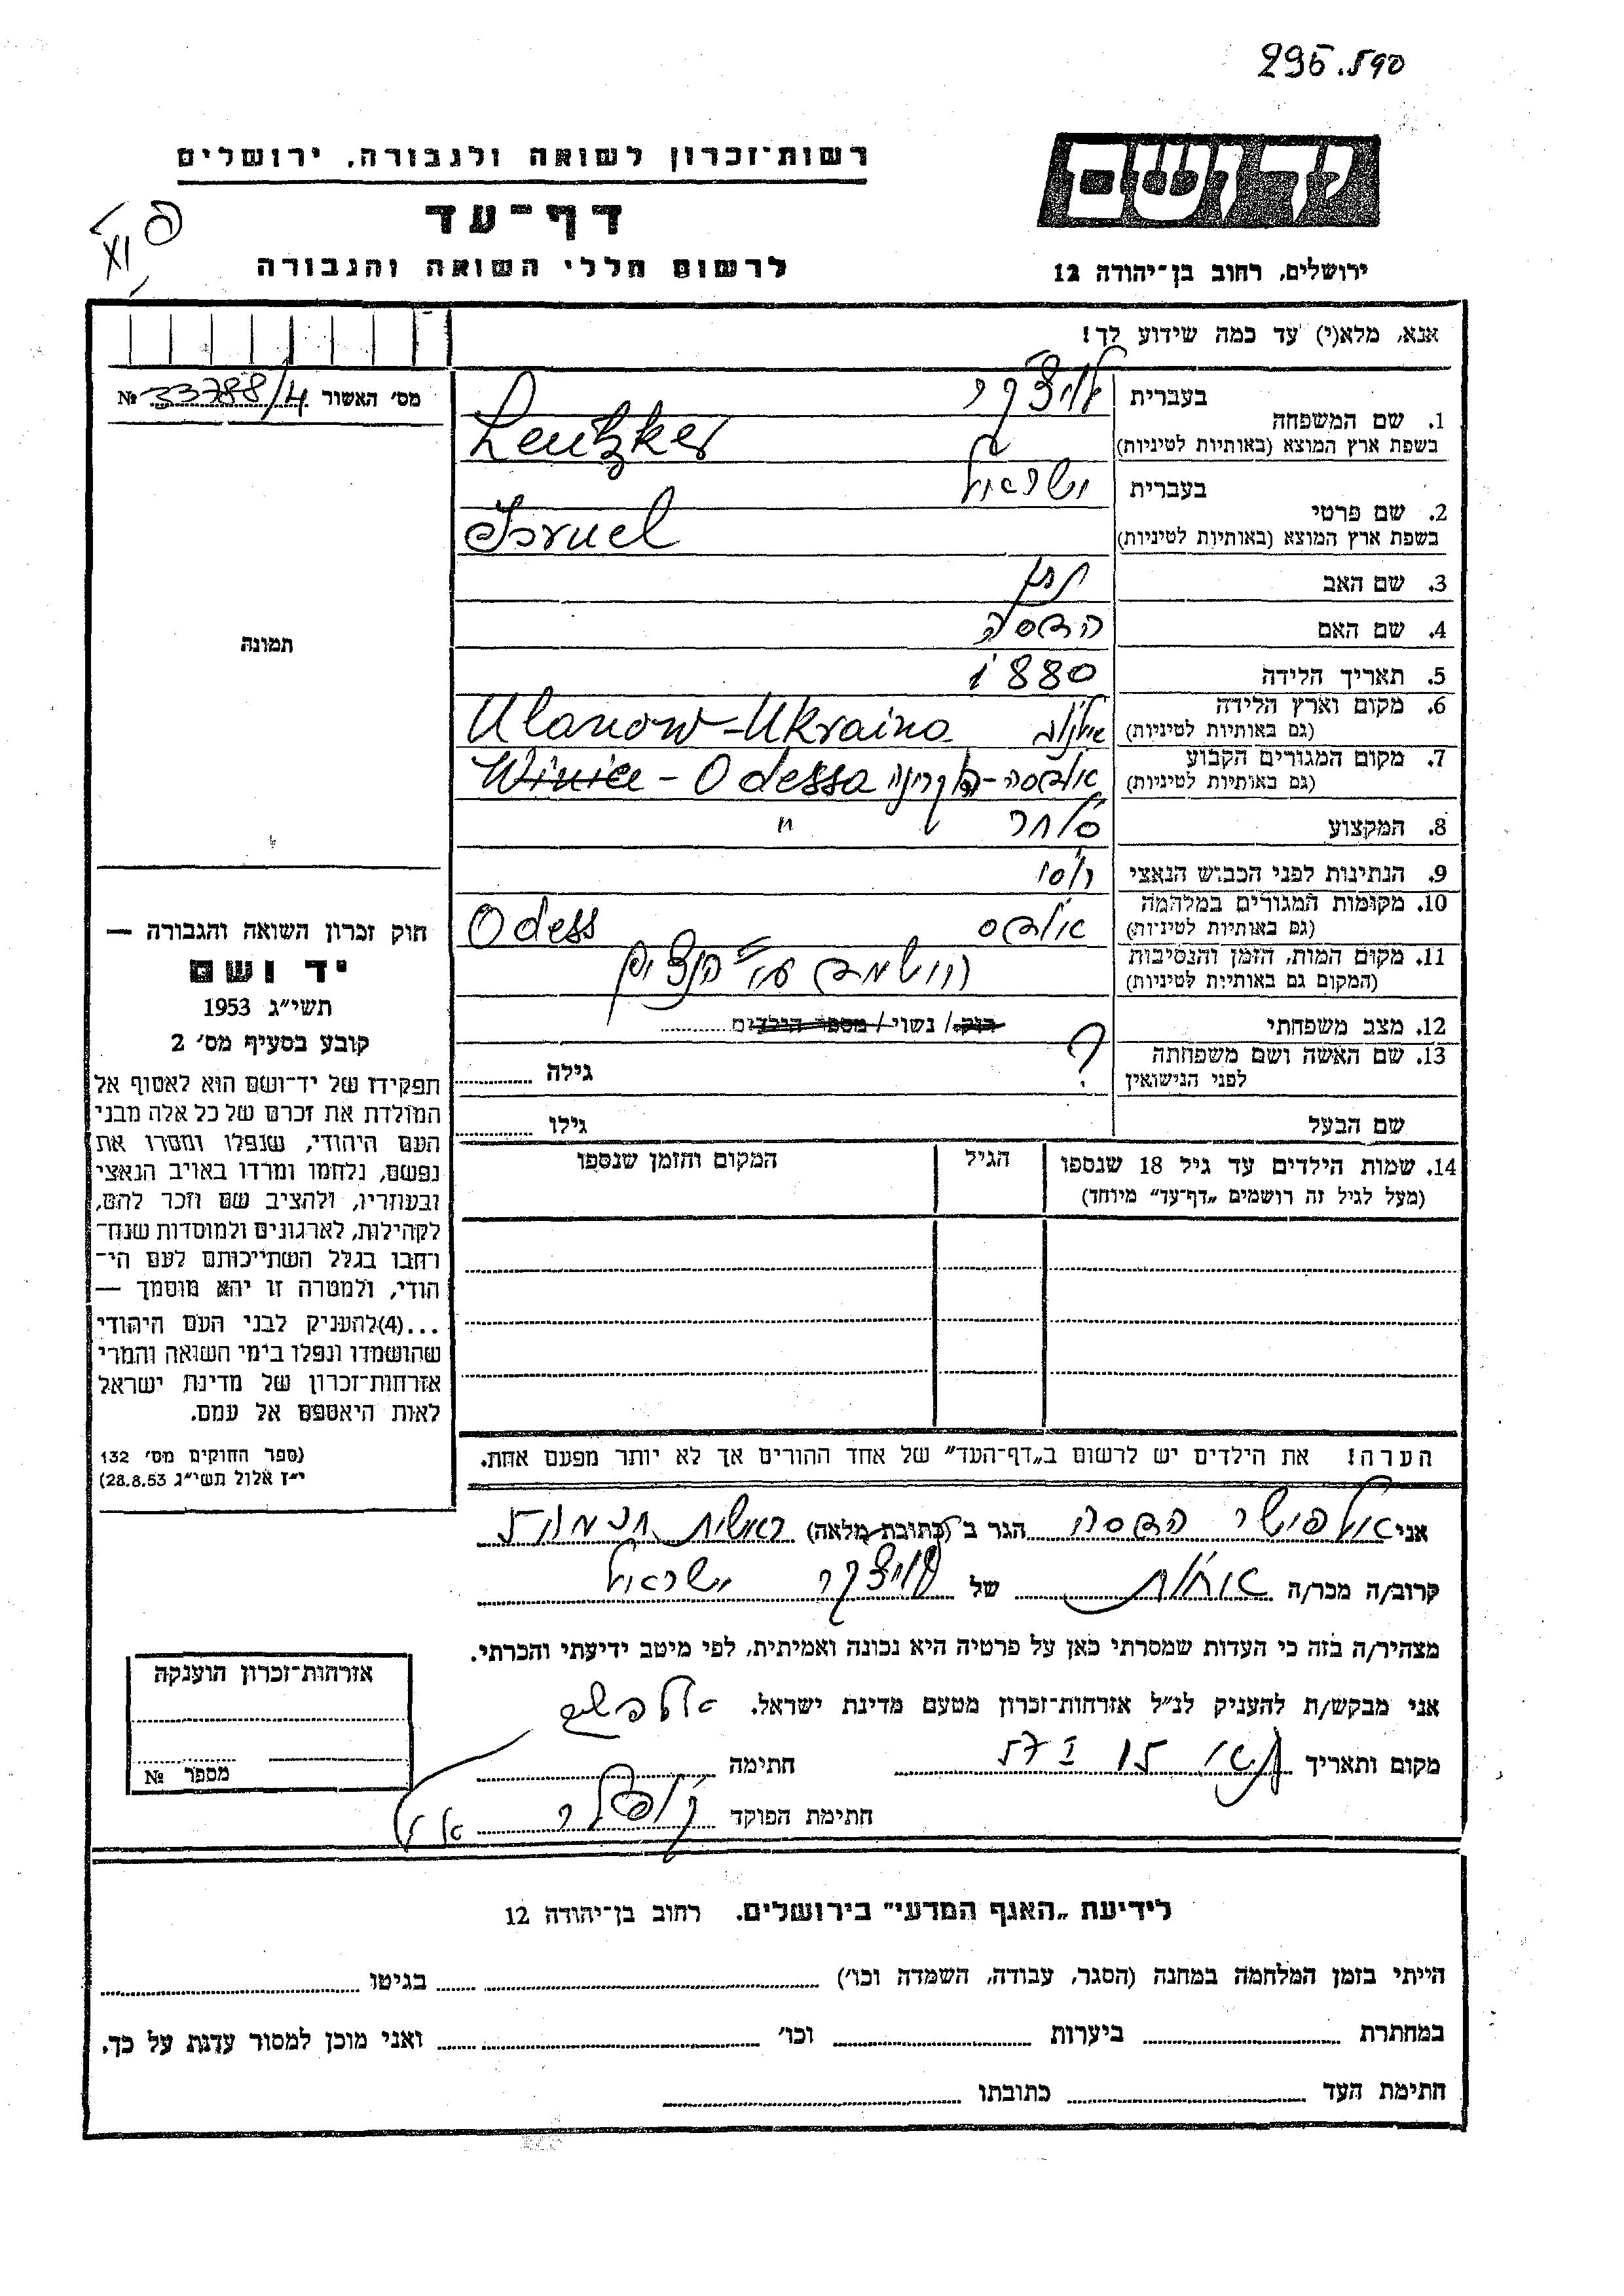 295.590
רשות־זכרון לשואה ולגבורה, ירושלים
יד ושם
דף־עד
XI
לרשום חללי השואה והגבורה
ירושלים, רחוב בן־יהודה 12
אנא, מלא(י) עד כמה שידוע לך!
מס׳ האשור № 33788/4
1. שם המשפחה בעברית לויצקר
בשפת ארץ המוצא (באותיות לטיניות) Leutzker
2. שם פרטי בעברית ישראל
בשפת ארץ המוצא (באותיות לטיניות) Isruel
3. שם האב נתן
4. שם האם הדסה
5. תאריך הלידה 1880
6. מקום וארץ הלידה (גם באותיות לטיניות) Ulanow-Ukraina
7. מקום המגורים הקבוע (גם באותיות לטיניות) אודסה-אוקרינה Winica - Odessa
8. המקצוע סוחר "
9. הנתינות לפני הכבוש הנאצי רוסי
10. מקומות המגורים במלחמה (גם באותיות לטיניות) אודס Odess
11. מקום המות, הזמן והנסיבות (המקום גם באותיות לטיניות) הושמד ע״י הנצים
12. מצב משפחתי רוק/ נשוי/ מספר הילדים
13. שם האשה ושם משפחתה לפני הנישואין ? גילה
שם הבעל גילו
14. שמות הילדים עד גיל 18 שנספו (מעל לגיל זה רושמים „דף־עד״ מיוחד) הגיל המקום והזמן שנספו
הערה! את הילדים יש לרשום ב„דף־העד״ של אחד ההורים אך לא יותר מפעם אחת.
תמונה
חוק זכרון השואה והגבורה —
יד ושם
תשי״ג 1953
קובע בסעיף מס׳ 2
תפקידו של יד־ושם הוא לאסוף אל
המולדת את זכרם של כל אלה מבני
העם היהודי, שנפלו ומסרו את
נפשם, נלחמו ומרדו באויב הנאצי
ובעוזריו, ולהציב שם וזכר להם,
לקהילות, לארגונים ולמוסדות שנח־
רבו בגלל השתייכותם לעם הי־
הודי, ולמטרה זו יהא מוסמך —
...(4)להעניק לבני העם היהודי
שהושמדו ונפלו בימי השואה והמרי
אזרחות־זכרון של מדינת ישראל
לאות היאספם אל עמם.
(ספר החוקים מס׳ 132
י״ז אלול תשי״ג 28.8.53)
אני הדסה הגר ב (כתובת מלאה)
קרוב/ה מכר/ה אחות של לויצקר ישראל
מצהיר/ה בזה כי העדות שמסרתי כאן על פרטיה היא נכונה ואמיתית, לפי מיטב ידיעתי והכרתי.
אני מבקש/ת להעניק לנ״ל אזרחות־זכרון מטעם מדינת ישראל.
מקום ותאריך 15 I 57 חתימה
חתימת הפוקד
אזרחות־זכרון הוענקה
מספר №
לידיעת „האגף המדעי״ בירושלים. רחוב בן־יהודה 12
הייתי בזמן המלחמה במחנה (הסגר, עבודה, השמדה וכו׳) בגיטו
במחתרת ביערות וכו׳ ואני מוכן למסור עדות על כך.
חתימת העד כתובתו